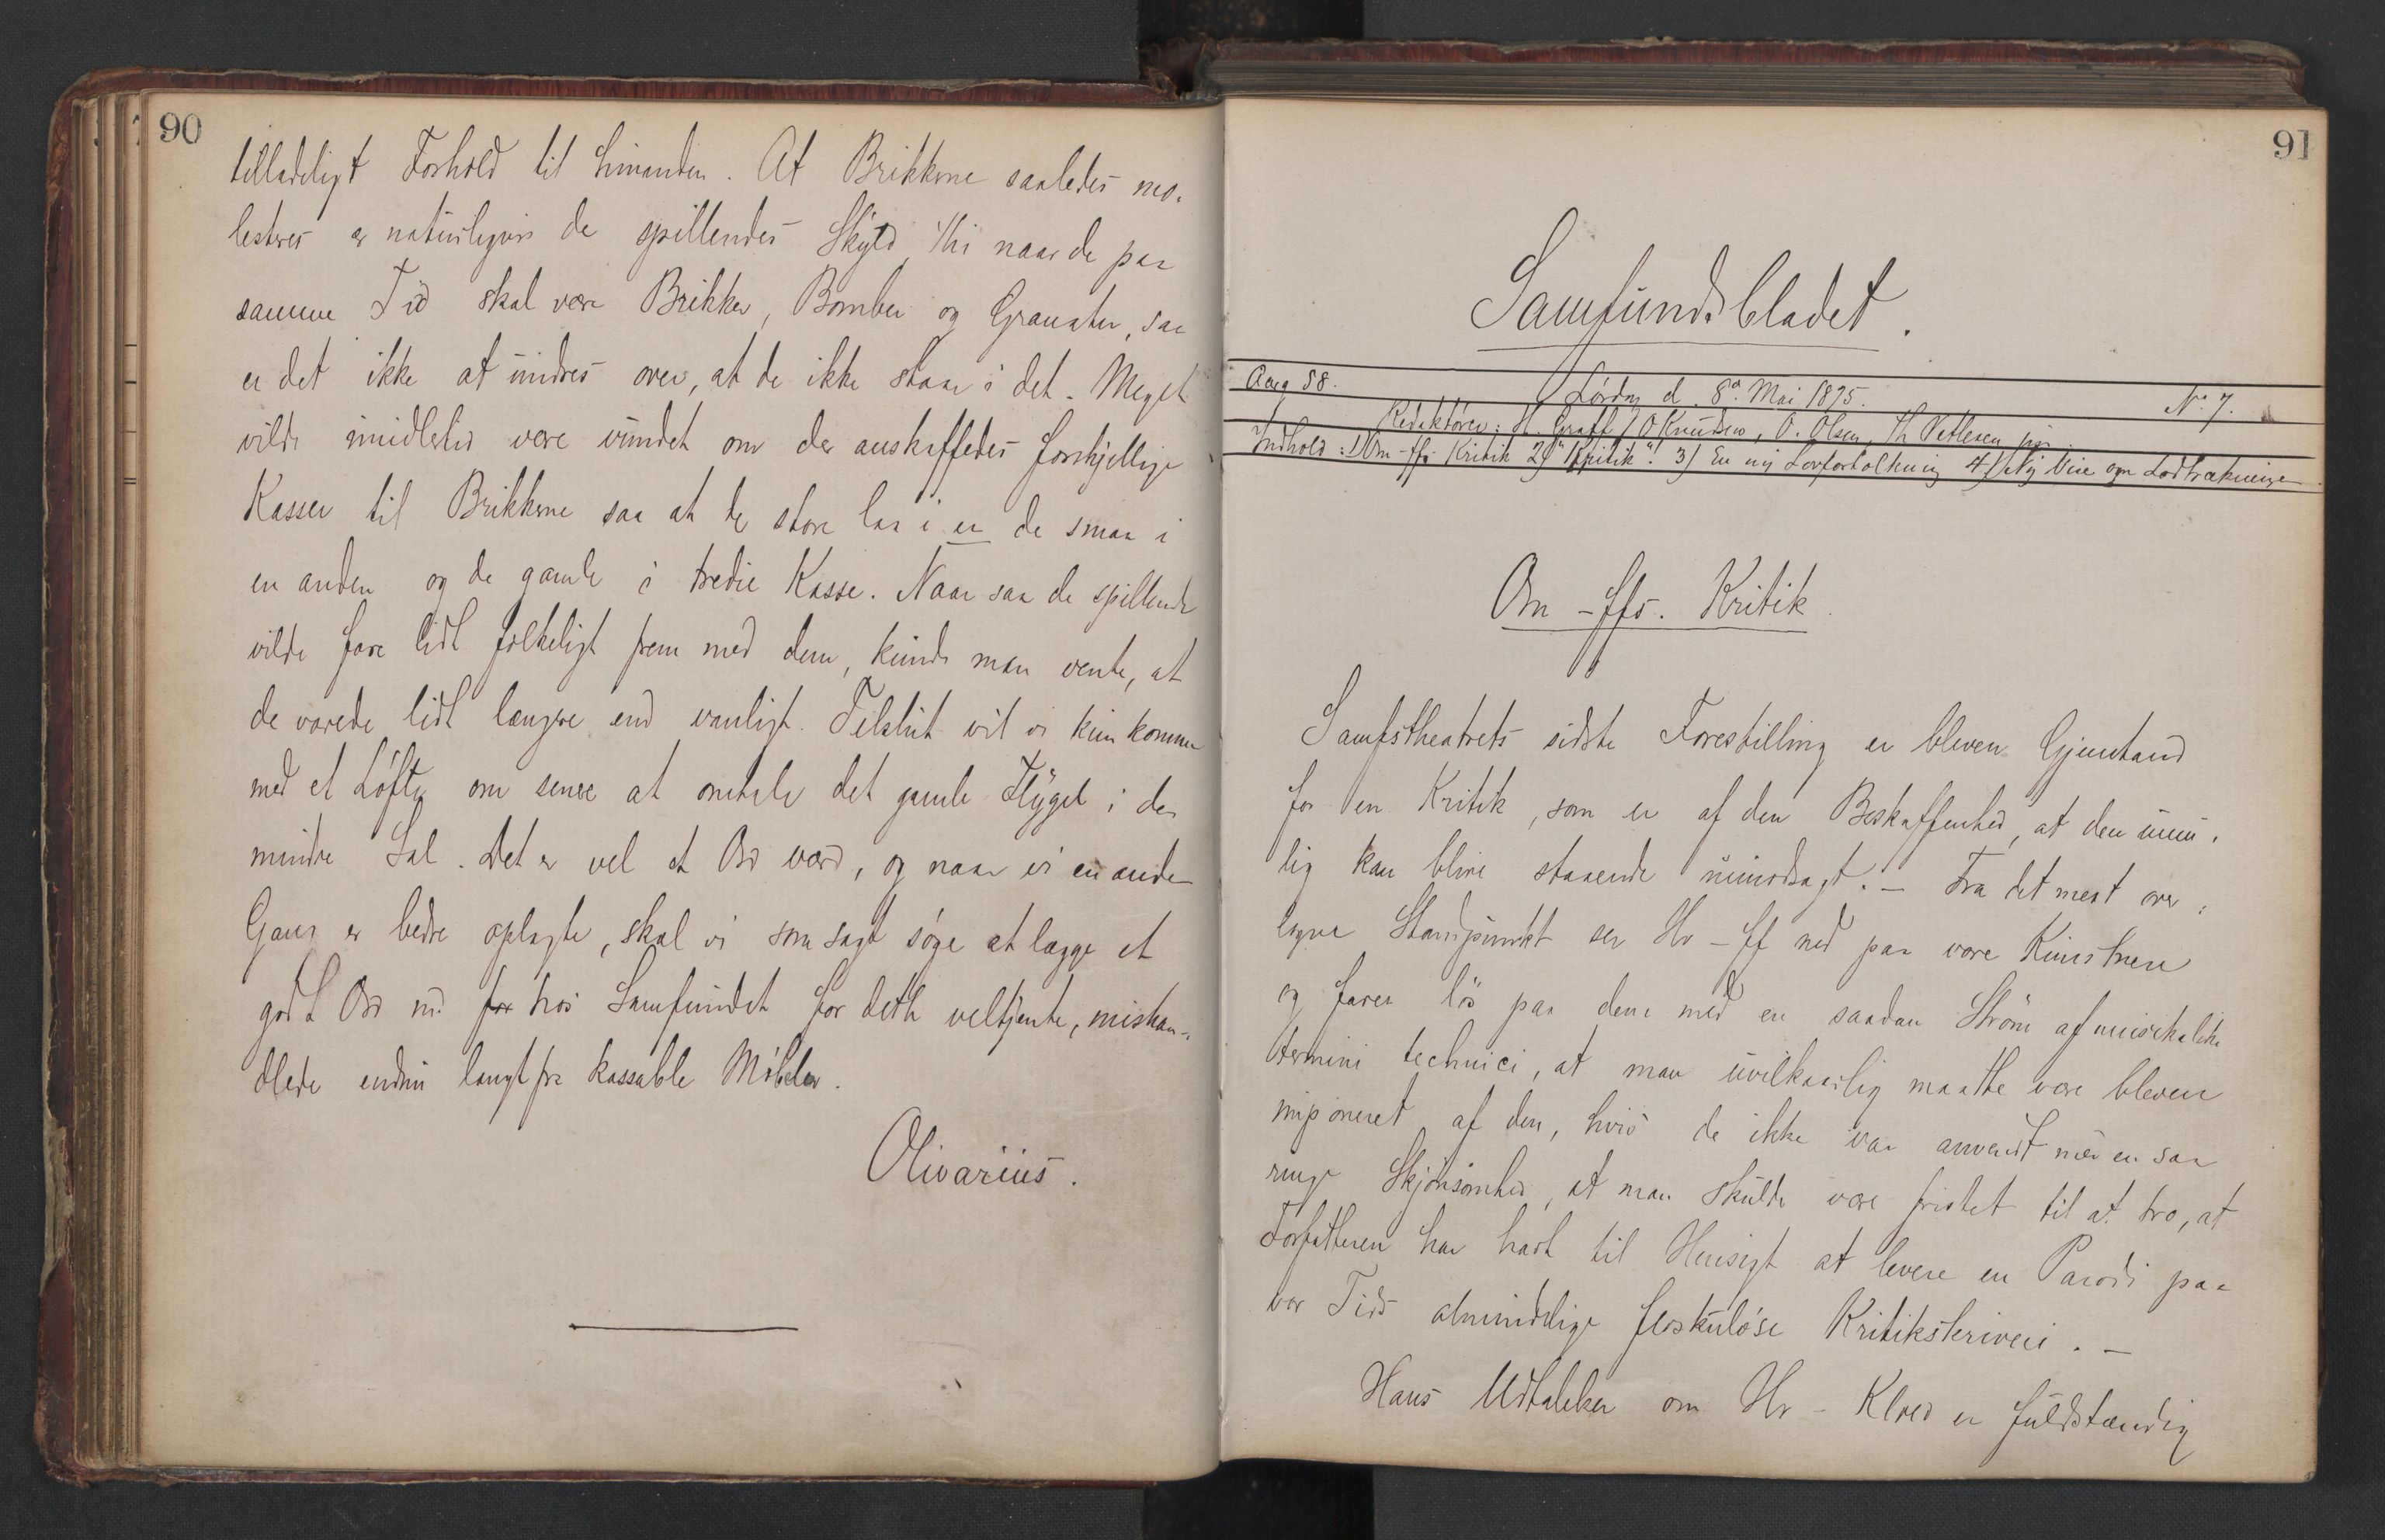 90
tilladeligt Forhold til hinanden. At Brikkerne saaledes mo-
lesteres er naturligvis de spillendes Skyld, thi naar de paa
samme Tid skal være Brikker, Bomber og Granater, saa
er det ikke at undres over, at de ikke staar i det. Meget
vilde imidlertid være vundet om der anskaffedes forskjellige
Kasser til Brikkerne saa at de store laa i en de smaa i
en anden og de gamle i tredie Kasse. Naar saa de spillende
vilde fare lidt folkeligt frem med dem, kunde man vente, at
de varede lidt længere end vanligt. Tilslut vil vi kun komme
med et Løfte om senere at omtale det gamle Flygel i den
mindre Sal. Det er vel et Ord værd, og naar vi en anden
Gang er bedre oplagte, skal vi som sagt søge at lægge et
godt Ord ind for hos Samfundet for dette veltjente, mishan-
dlede endnu langt fra kassable Møbler.
Olivarius.
91
Samfundsbladet.
Aarg 58. Lørdag d. 8de Mai 1875. No 7.
Redaktører: H. Graff, O Knudsen, O. Olsen, Th Petlesen jør.
Indhold: 1) Om -ffs Kritik 2) "Kritik". 3) En ny Lovfortolkning 4) Ny Vise om Lodtrækningen
Om -ffs. Kritik.
Samfstheatrets sidste Forestilling er bleven Gjenstand
for en Kritik, som er af den Beskaffenhed, at den umu-
lig kan blive staaende uimodsagt. - Fra det mest over-
legne Standpunkt ser Hr -ff ned paa vore Kunstnere
og farer løs paa dem med en saadan Strøm af musikalske
termini technici, at man uvilkaarlig maatte være bleven
imponeret af den, hvis de ikke var anvendt med en saa
ringe Skjønsomhed, at man skulde være fristet til at tro, at
Forfatteren har havt til Hensigt at levere en Parodi paa
vor Tids almindelige floskuløse Kritikskriveri. -
Hans Udtalelser om Hr - Kloed er fuldstændig